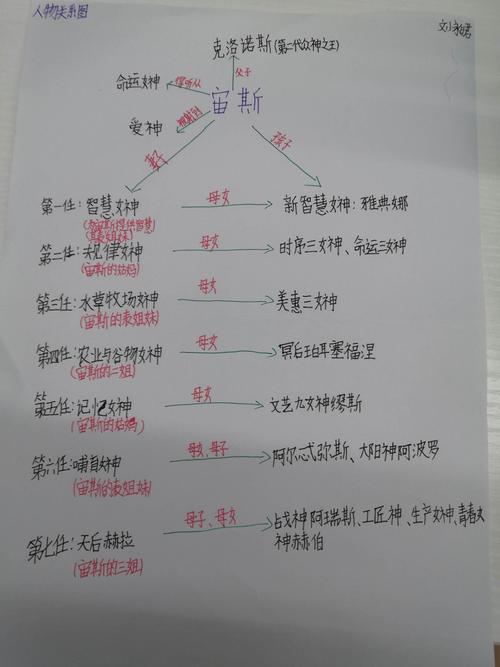 人物关系图
刘
克洛诺斯(第二代众神之王)
父子
命运女神
得听从
宙斯
爱神
被射到
妻子
孩子
第一任:智慧女神
母女
新智慧女神:雅典娜
(为宙斯提供智慧)
(表姐妹)
第二任:规律女神
母女
时序三女神、命运三女神
(宙斯的姑妈)
第三任:水草牧场女神
母女
美惠三女神
(宙斯的表姐妹)
第四任:农业与谷物女神
母女
冥后珀耳塞福涅
(宙斯的二姐)
第五任:记忆女神
母女
文艺九女神缪斯
(宙斯的姑妈)
第六任:哺育女神
母女、母子
阿尔忒弥斯、太阳神阿波罗
(宙斯的表姐妹)
第七任:天后赫拉
母子、母女
战神阿瑞斯、工匠神、生产女神、青春女
神赫伯
(宙斯的三姐)